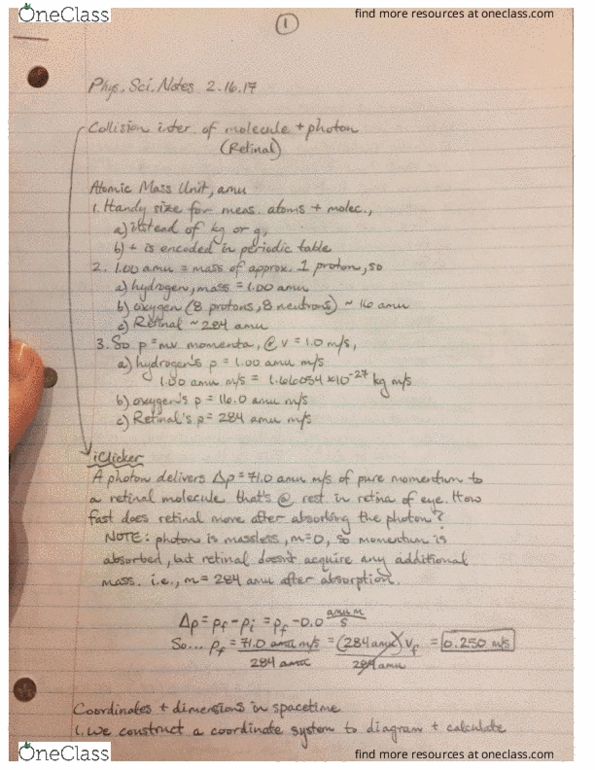 OneClass find more resources at oneclass.com
1
Phys. Sci. Notes 2.16.17
Collision inter. of molecule + photon
(Retinal)
Atomic Mass Unit, amu
1. Handy size for meas. atoms + molec.,
a) instead of kg or g,
b) + is encoded in periodic table
2. 1.00 amu = mass of approx. 1 proton, so
a) hydrogen, mass = 1.00 amu
b) oxygen (8 protons, 8 neutrons) ~ 16 amu
c) Retinal ~ 284 amu
3. So p = mv momenta, @ v = 1.0 m/s,
a) hydrogen's p = 1.00 amu m/s
1.00 amu m/s = 1.66054 x10^-27 kg m/s
b) oxygen's p = 16.0 amu m/s
c) Retinal's p = 284 amu m/s
iClicker
A photon delivers Δp = 71.0 amu m/s of pure momentum to
a retinal molecule that's @ rest in retina of eye. How
fast does retinal move after absorbing the photon?
NOTE: photons is massless, m=0, so momentum is
absorbed, but retinal doesn't acquire any additional
mass. i.e., m = 284 amu after absorption.
Δp = pf - pi = pf - 0.0 amu m/s
So... pf = 71.0 amu m/s / 284 amu = (284 amu) vf / 284 amu = 0.250 m/s
Coordinates + dimensions in spacetime
1. We construct a coordinate system to diagram + calculate
OneClass find more resources at oneclass.com